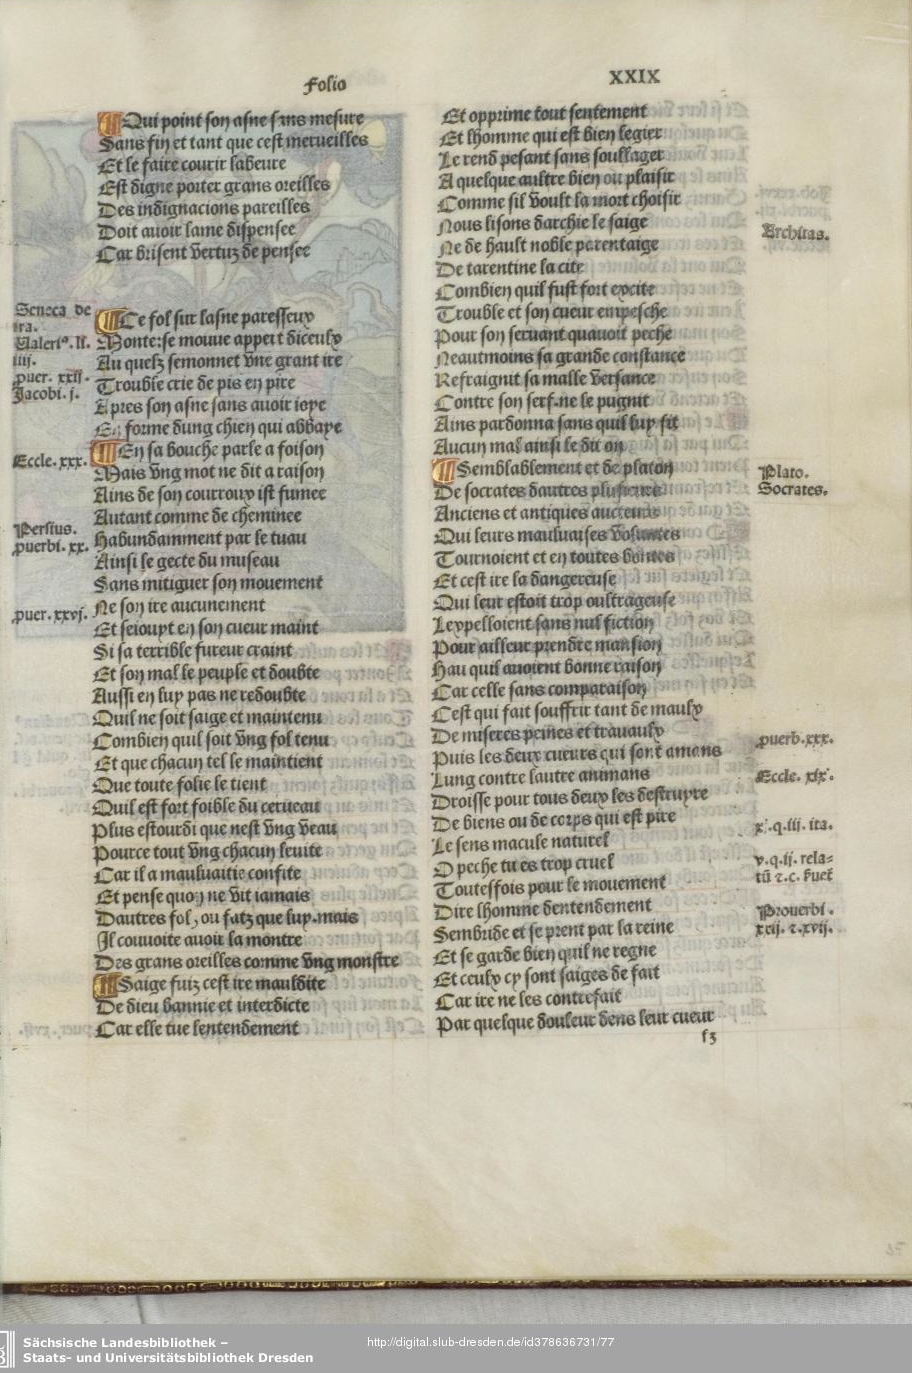 Folio
XXIX
Qui point son asne sans mesure
Sans fin et tant que cest merueilles
Et le faire courir labeure
Est digne porter grans oreilles
Des indignacions pareilles
Doit auoir lame dispensee
Car brisent vertuz de pensee
Ce fol sur lasne paresseux
Monte: se mouue appert diceulx
Au quelz semonnet vne grant ire
Trouble crie de pis en pire
Apres son asne sans auoir ioye
En forme dung chien qui abbaye
En sa bouche parle a foison
Mais vng mot ne dit a raison
Ains de son courroux ist fumee
Autant comme de cheminee
Habundamment par le tuau
Ainsi le gecte du museau
Sans mitiguer son mouement
Ne son ire aucunement
Et seiouyt en son cueur maint
Si sa terrible fureur craint
Et son mal le peuple et doubte
Aussi en luy pas ne redoubte
Quil ne soit saige et maintenu
Combien quil soit vng fol tenu
Et que chacun tel le maintient
Que toute folie le tient
Quil est fort foible du cerueau
Plus estourdi que nest vng veau
Pource tout vng chacun leuite
Car il a mauluaitie confite
Et pense quon ne vit iamais
Dautres fol, ou fatz que luy. mais
Il couuoite auoir la montre
Des grans oreilles comme vng monstre
Saige fuiz cest ire mauldite
De dieu bannie et interdicte
Car elle tue lentendement
Seneca de
ira.
Valeriꝰ. li.
iiii.
ꝓuer. xxii.
Jacobi. j.
Eccle. xxx.
Persius.
ꝓuerbi. xx.
ꝓuer. xxvj.
Et opprime tout sentement
Et lhomme qui est bien legier
Le rend pesant sans soullager
A quelque aultre bien ou plaisir
Comme sil voult la mort choisir
Nous lisons darchie le saige
Ne de hault noble parentaige
De tarentine la cite
Combien quil fust fort excite
Trouble et son cueur empesche
Pour son seruant quauoit peche
Neautmoins sa grande constance
Refraignit sa malle versance
Contre son serf. ne le pugnit
Ains pardonna sans quil luy fit
Aucun mal ainsi le dit on
Semblablement et de platon
De socrates dautres plusieurs
Anciens et antiques aucteurs
Qui leurs mauluaises voluntes
Tournoient et en toutes bontes
Et cest ire la dangereuse
Qui leur estoit trop oultrageuse
Lexpelloient sans nul fiction
Pour ailleur prendre mansion
Hau quil auoient bonne raison
Car celle sans comparaison
Cest qui fait souffrir tant de maulx
De miseres peines et trauaulx
Puis les deux cueurs qui sont amans
Lung contre lautre animans
Droisse pour tous deux les destruyre
De biens ou de corps qui est pire
Le sens macule naturel
O peche tu es trop cruel
Toutesfois pour le mouement
Dire lhomme dentendement
Sembride et se prent par la reine
Et se garde bien quil ne regne
Et ceulx cy sont saiges de fait
Car ire ne les contrefait
Par quelque douleur dens leur cueur
f3
Architas.
Plato.
Socrates.
ꝓuerb. xxx.
Eccle. xix.
x. q. iii. ita.
v. q. ij. rela-
Prouerbi.
xvij. ⁊. xvij.
35
Sächsische Landesbibliothek –
Staats- und Universitätsbibliothek Dresden
http://digital.slub-dresden.de/id378636731/77